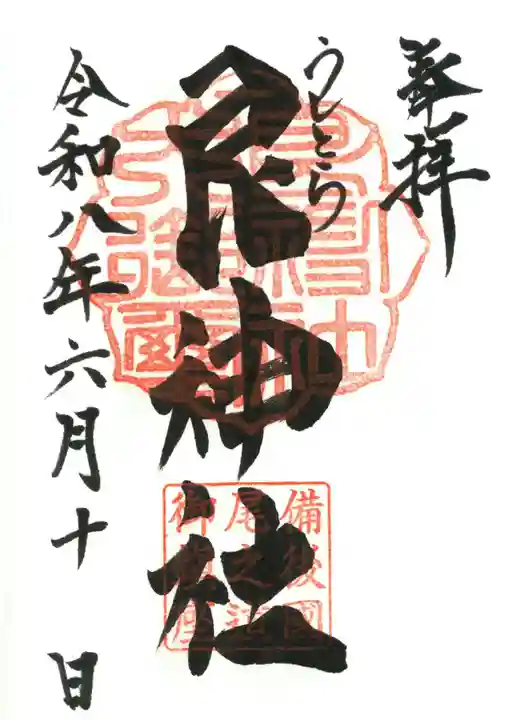 奉拝
うしとら
艮神社
備後國
尾之道
御鎮座
令和八年六月十 日